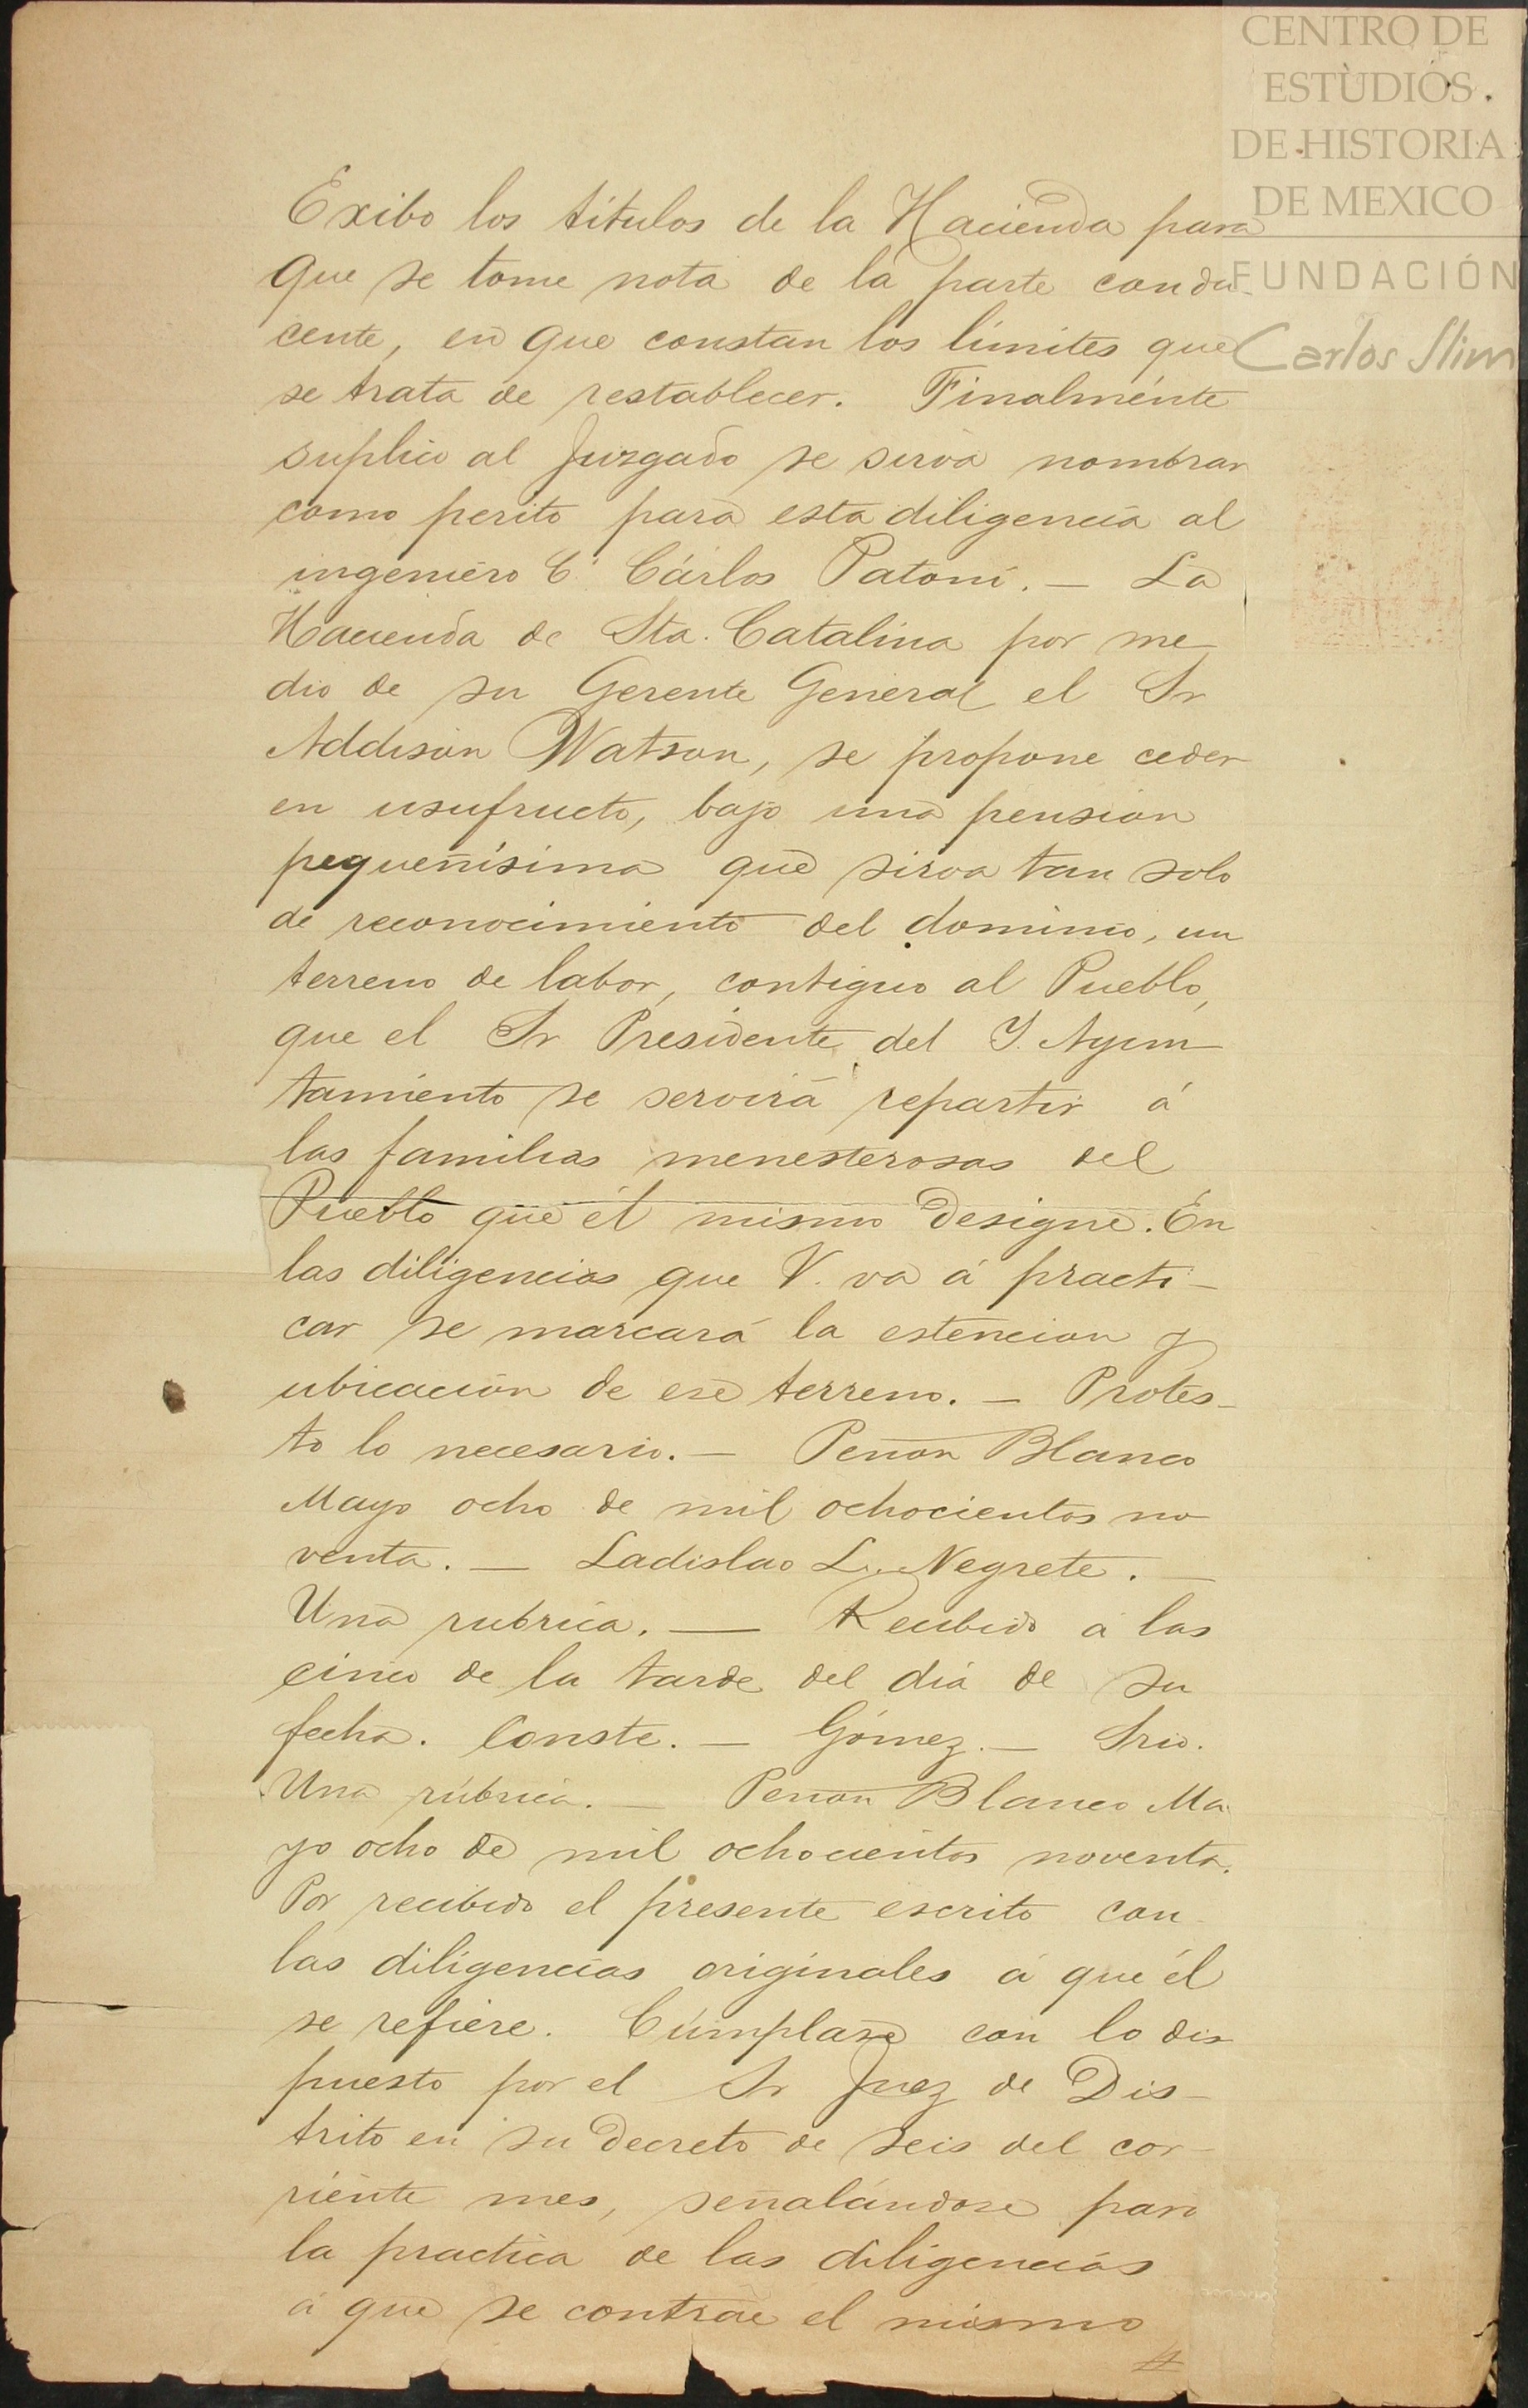 CENTRO DE
ESTUDIOS
DE HISTORIA
DE MEXICO
FUNDACIÓN
Carlos Slim
Exibo los títulos de la Hacienda para
que se tome nota de la parte condu-
cente, en que constan los límites que
se trata de restablecer. Finalmente
suplico al Juzgado se sirva nombrar
como perito para esta diligencia al
ingeniero C. Cárlos Patoni. — La
Hacienda de Sta. Catalina por me
dio de su Gerente General el Sr
Addison Watson, se propone ceder
en usufructo, bajo una pension
pequeñísima que sirva tan solo
de reconocimiento del dominio, un
terreno de labor, contiguo al Pueblo,
que el Sr Presidente del Y. Ayun
tamiento se servirá repartir á
las familias menesterosas del
Pueblo que él mismo designe. En
las diligencias que V. va á practi-
car se marcará la estencion y
ubicación de ese terreno. — Protes-
to lo necesario. — Peñon Blanco
Mayo ocho de mil ochocientos no
venta. — Ladislao L. Negrete. —
Una rubrica. — Recibido á las
cinco de la tarde del dia de su
fecha. Conste. — Gómez. — Srio.
Una rúbrica. — Peñon Blanco Ma
yo ocho de mil ochocientos noventa.
Por recibido el presente escrito con
las diligencias originales á que él
se refiere. Cúmplase con lo dis
puesto por el Sr Juez de Dis-
trito en su decreto de seis del cor-
riente mes, señalándose para
la practica de las diligencias
á que se contrae el mismo